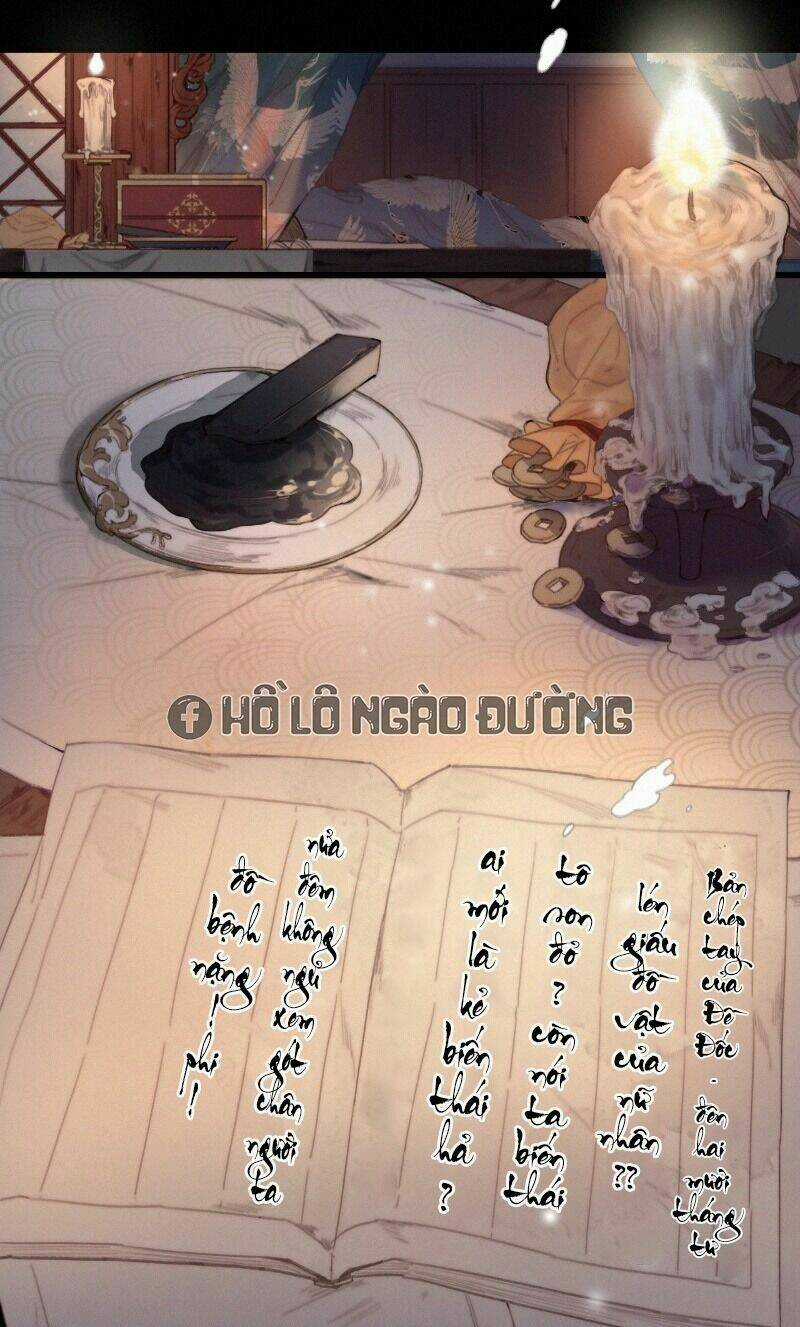 HỒ LÔ NGÀO ĐƯỜNG
Bản chép tay của Đề Đốc - đêm hai mươi tháng tư
lén giấu đồ vật của nữ nhân??
tô son đỏ? còn nói ta biến thái
ai mới là kẻ biến thái hả?
nửa đêm không ngủ xem gót chân người ta
đồ bệnh nặng! phi!